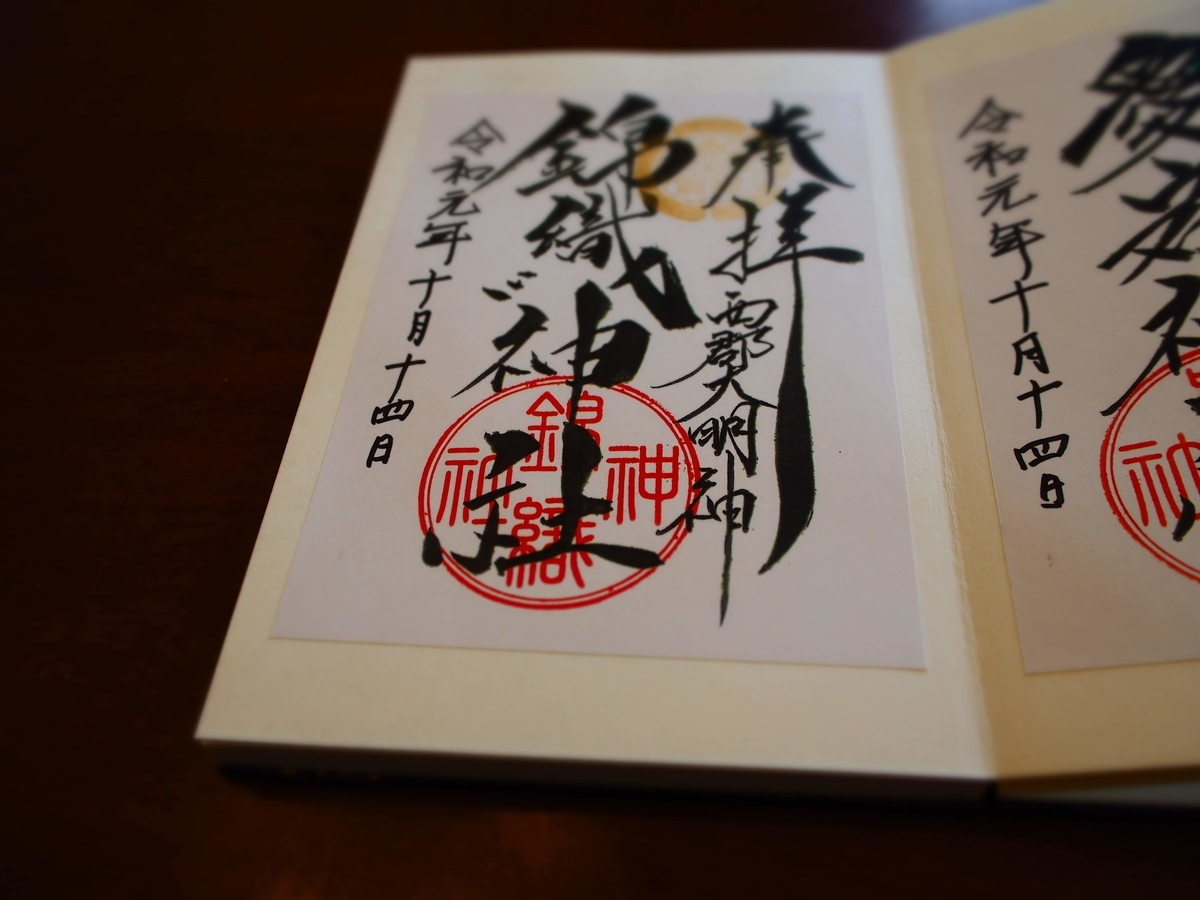 令和元年十月十四日
奉拝
西郡大明神
錦織神社
錦織神社
令和元年十月十四日